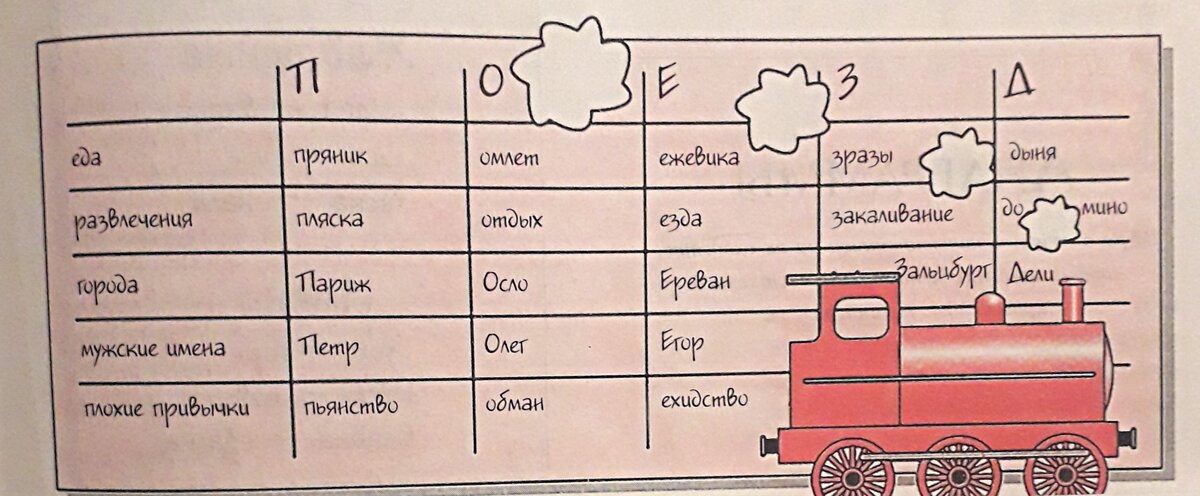 П О Е З Д
еда пряник омлет ежевика зразы дыня
развлечения пляска отдых езда закаливание до мино
города Париж Осло Ереван Зальцбург Дели
мужские имена Петр Олег Егор
плохие привычки пьянство обман ехидство